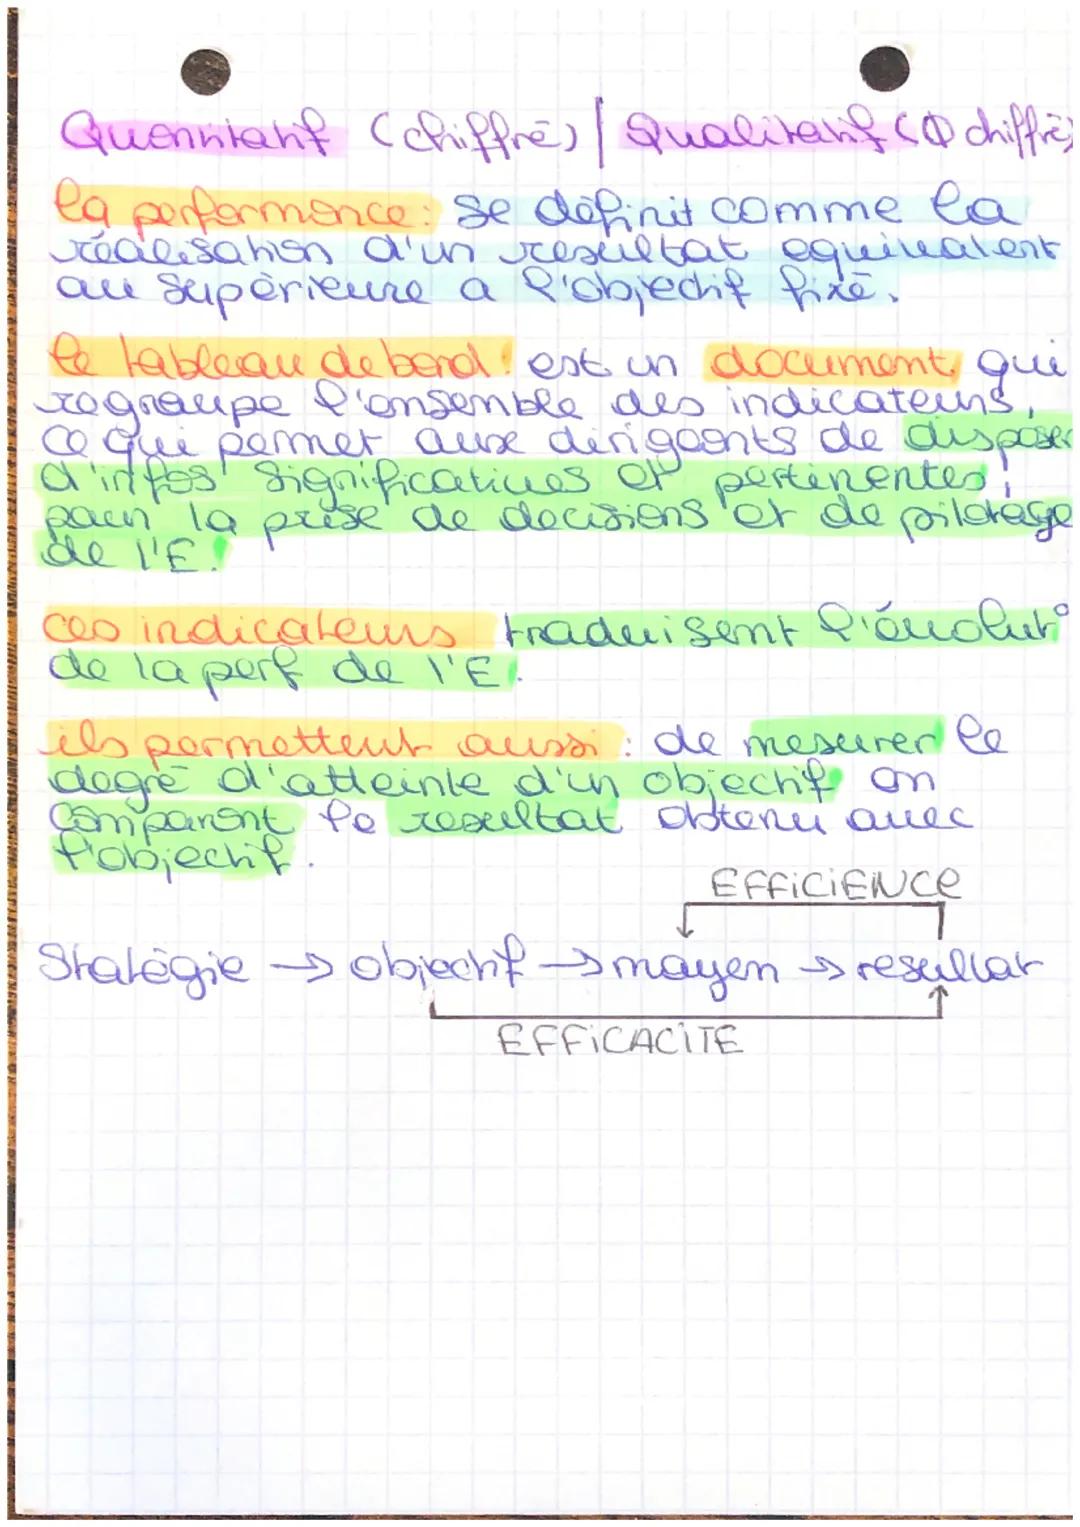 Quantitatif (chiffré) / Qualitatif (Φ chiffré)
la performance : se définit comme la
réalisation d'un resultat equivalent
ou supérieure a l'objectif fixé.
le tableau de bord : est un document qui
regroupe l'ensemble des indicateurs,
ce qui permet aux dirigeants de disposer
d'infos significatives et pertinentes,
pour la prise de decisions et de pilotage
de l'E.
ces indicateurs traduisent l'évolut°
de la perf de l'E.
ils permettent aussi : de mesurer le
degré d'atteinte d'un objectif en
comparant le resultat obtenu avec
l'objectif.
EFFiCiENCe
Stratégie → objectif → moyen → resultat
EFFiCACiTE